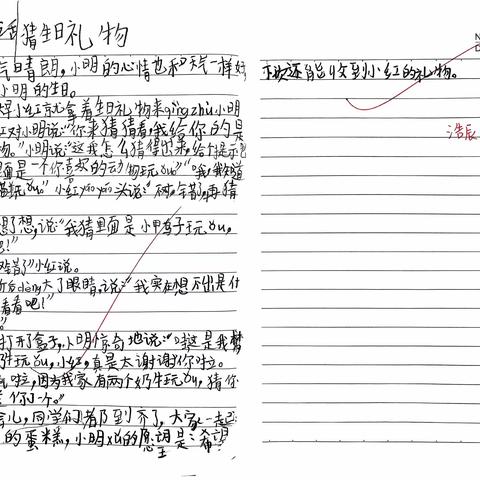 猜生日礼物
气日晴朗，小明的心情也和天气一样好
小明的生日。
小红就拿着生日礼物来qìngzhù小明
红对小明说："你来猜猜看，我给你的是
物。"小明说："这我怎么猜得出来，给个提示吧
面是一个你喜欢的动物玩ǒu。""哦，我知道
猫玩ǒu。"小红yáoyáo头说："不对，错了，再猜
想了想，说："我猜里面是小鸭子玩ǒu，
吧！"
错了"小红说。
dèng大了眼睛，说："我实在想不出是什
看看吧！"
打开了盒子，小明惊奇地说："哇这是我梦
牛玩ǒu，小红，真是太谢谢你啦。
啦，因为我家有两个奶牛玩ǒu，猜你
你了一个。"
会儿，同学们都到齐了，大家一起
的蛋糕，小明xǔ的愿望是：希望
次还能收到小红的礼物。
浩辰